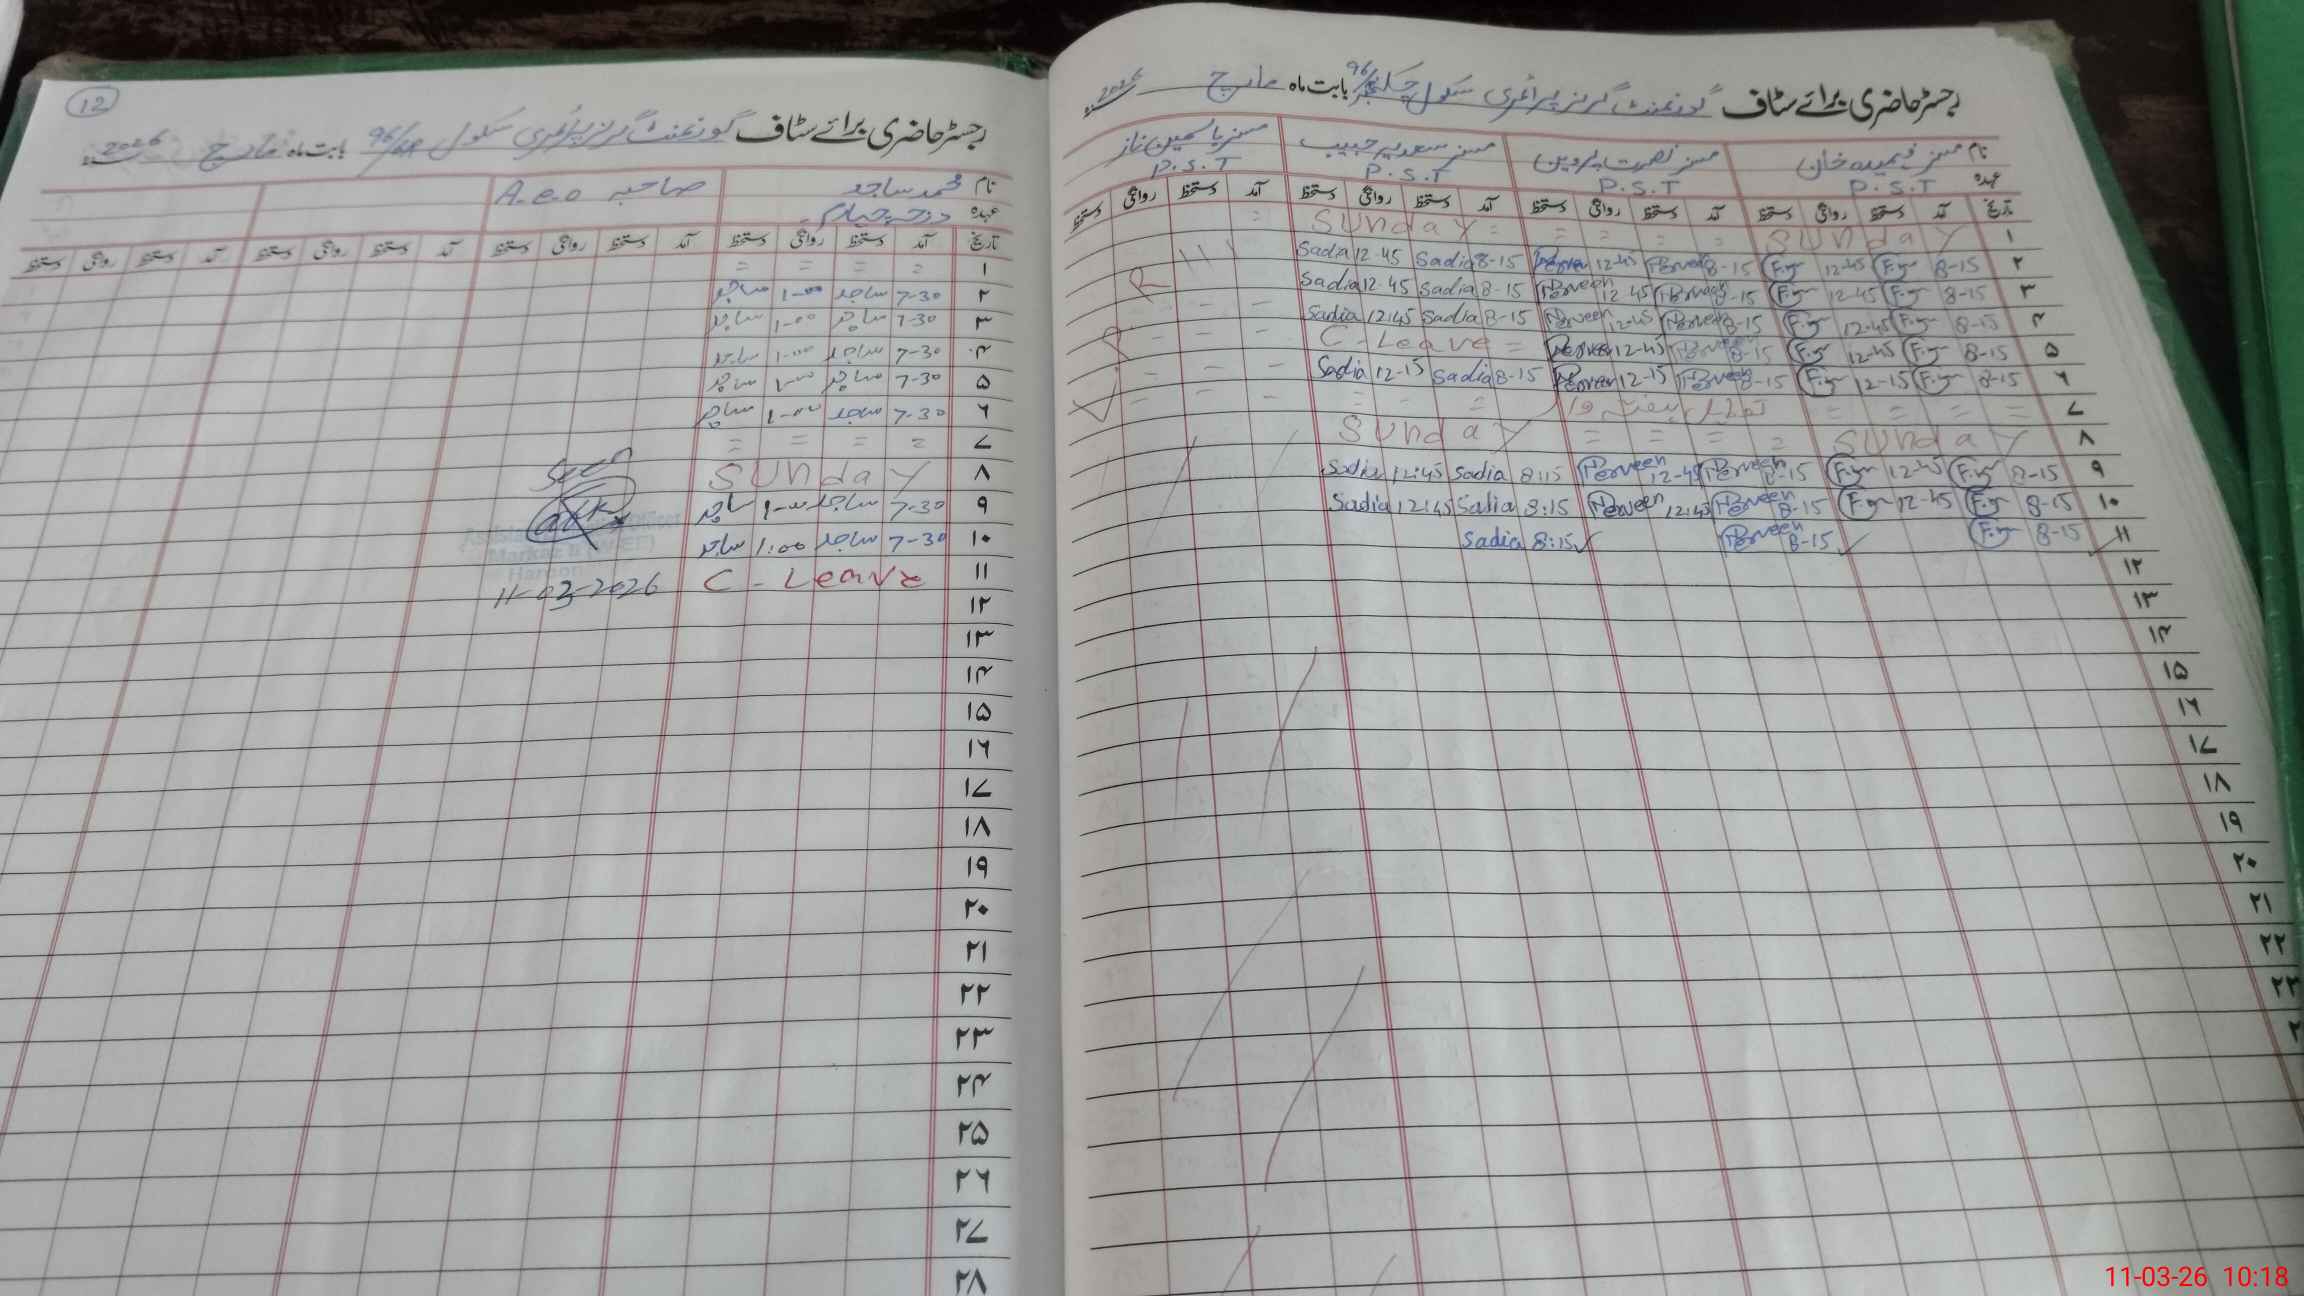 رجسٹر حاضری برائے سٹاف گورنمنٹ گرلز پرائمری سکول چک نمبر 96 بابت ماہ مارچ 2026
نام مسز فہمیدہ خان مسز نصرت پروین مسز سعدیہ حبیب مسز یاسمین ناز
عہدہ P.S.T P.S.T P.S.T P.S.T
تاریخ آمد دستخط روانگی دستخط آمد دستخط روانگی دستخط آمد دستخط روانگی دستخط آمد دستخط روانگی دستخط
۱ SUNDAY = = = = SUNDAY =
۲ 8-15 12-45 8-15 Perveen 12-45 Perveen 8-15 Sadia 12-45 Sadia
۳ 8-15 12-45 8-15 Perveen 12-45 Perveen 8-15 Sadia 12-45 Sadia
۴ 8-15 12-45 8-15 Perveen 12-45 Perveen 8-15 Sadia 12:45 Sadia
۵ 8-15 12-45 8-15 Perveen 12-45 Perveen C-Leave =
۶ 8-15 12-15 8-15 Perveen 12-15 Perveen 8-15 Sadia 12-15 Sadia
۷ = = = = = = =
۸ SUNDAY = = = = SUNDAY
۹ 8-15 12-45 8-15 Perveen 12-45 Perveen 8:15 Sadia 12:45 Sadia
۱۰ 8-15 12-45 8-15 Perveen 12:45 Perveen 8:15 Sadia 12:45 Sadia
۱۱ 8-15 8-15 Perveen 8:15 Sadia
۱۲
۱۳
۱۴
۱۵
۱۶
۱۷
۱۸
۱۹
۲۰
۲۱
۲۲
۲۳
12
رجسٹر حاضری برائے سٹاف گورنمنٹ گرلز پرائمری سکول 96 بابت ماہ مارچ 2026
نام محمد ساجد A.e.o صاحبہ
عہدہ درجہ چہارم
تاریخ آمد دستخط روانگی دستخط آمد دستخط روانگی دستخط آمد دستخط روانگی دستخط آمد دستخط روانگی دستخط
۱ = = = =
۲ 7-30 ساجد 1-00 ساجد
۳ 7-30 ساجد 1-00 ساجد
۴ 7-30 ساجد 1-00 ساجد
۵ 7-30 ساجد 1-00 ساجد
۶ 7-30 ساجد 1-00 ساجد
۷ = = = =
۸ SUNDAY Seen
۹ 7-30 ساجد 1-00 ساجد
۱۰ 7-30 ساجد 1:00 ساجد
۱۱ C-Leave 11-03-2026
۱۲
۱۳
۱۴
۱۵
۱۶
۱۷
۱۸
۱۹
۲۰
۲۱
۲۲
۲۳
۲۴
۲۵
۲۶
۲۷
۲۸
11-03-26 10:18